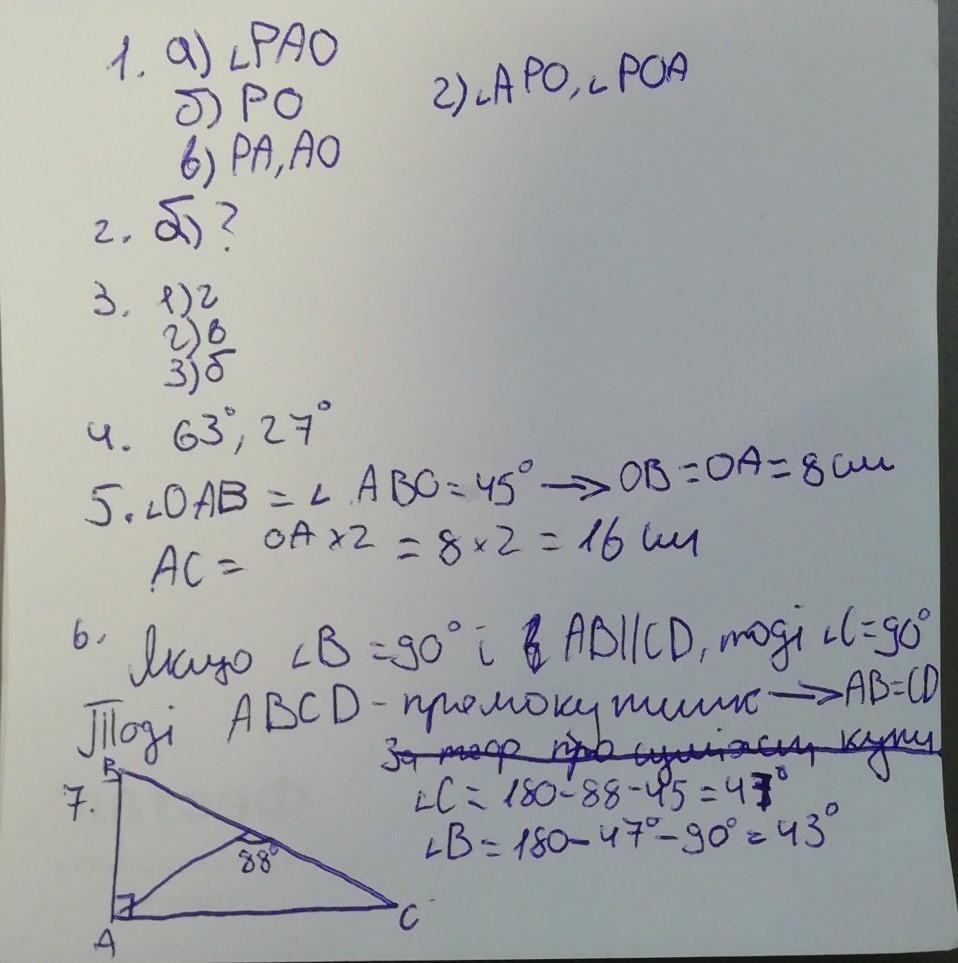 1. а) ∠PAO
б) PO
в) PA, AO
г) ∠APO, ∠POA
2. б) ?
3. 1) г
2) в
3) б
4. 63°, 27°
5. ∠OAB = ∠ABO = 45° → OB = OA = 8 см
AC = OA × 2 = 8 × 2 = 16 см
6. Якщо ∠B = 90° і AB||CD, тоді ∠C = 90°
Тоді ABCD - прямокутник → AB = CD
За теор про суміжні кути
7. ∠C = 180 - 88 - 45 = 47°
∠B = 180 - 47° - 90° = 43°
B
88°
A
C